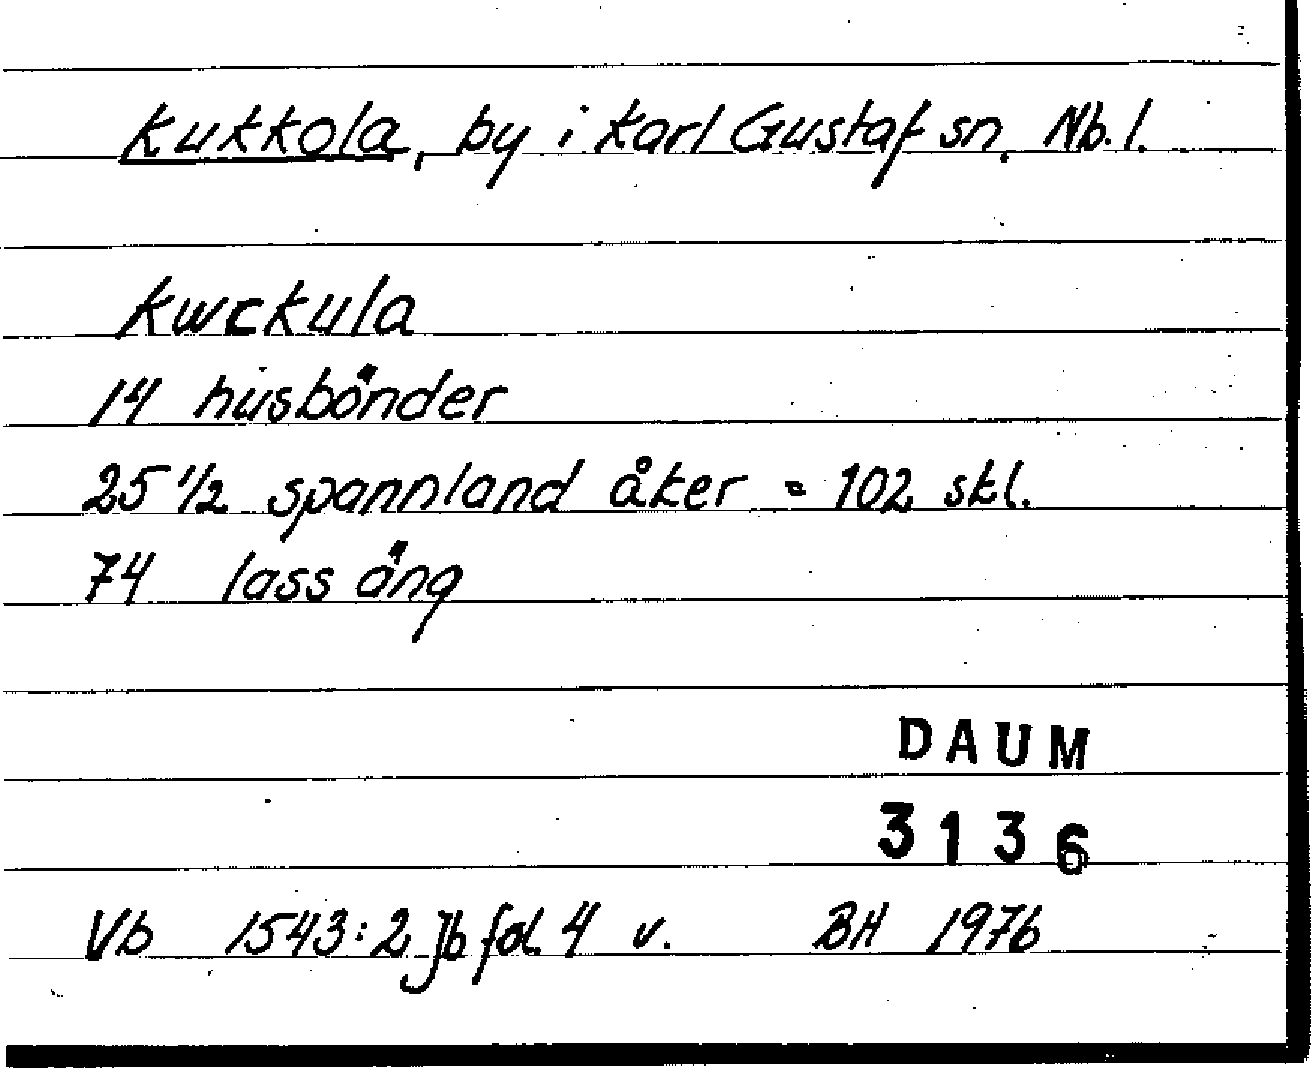 Kukkola, by i Karl Gustaf sn, Nb. l.
Kwckula
14 husbönder
25 1/2 spannland åker = 102 skl.
74 lass äng
DAUM
3136
Vb 1543:2 Jb fol. 4 v. BH 1976